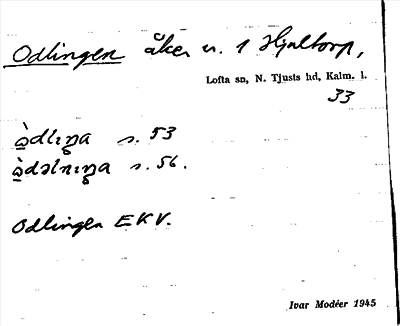 Odlingen åker n. 1 Hjaltorp,
Lofta sn, N. Tjusts hd, Kalm. l.
33
ὰdlɩŋa s. 53
ὰdəlnɩŋa s. 56.
Odlingen EKV.
Ivar Modéer 1945